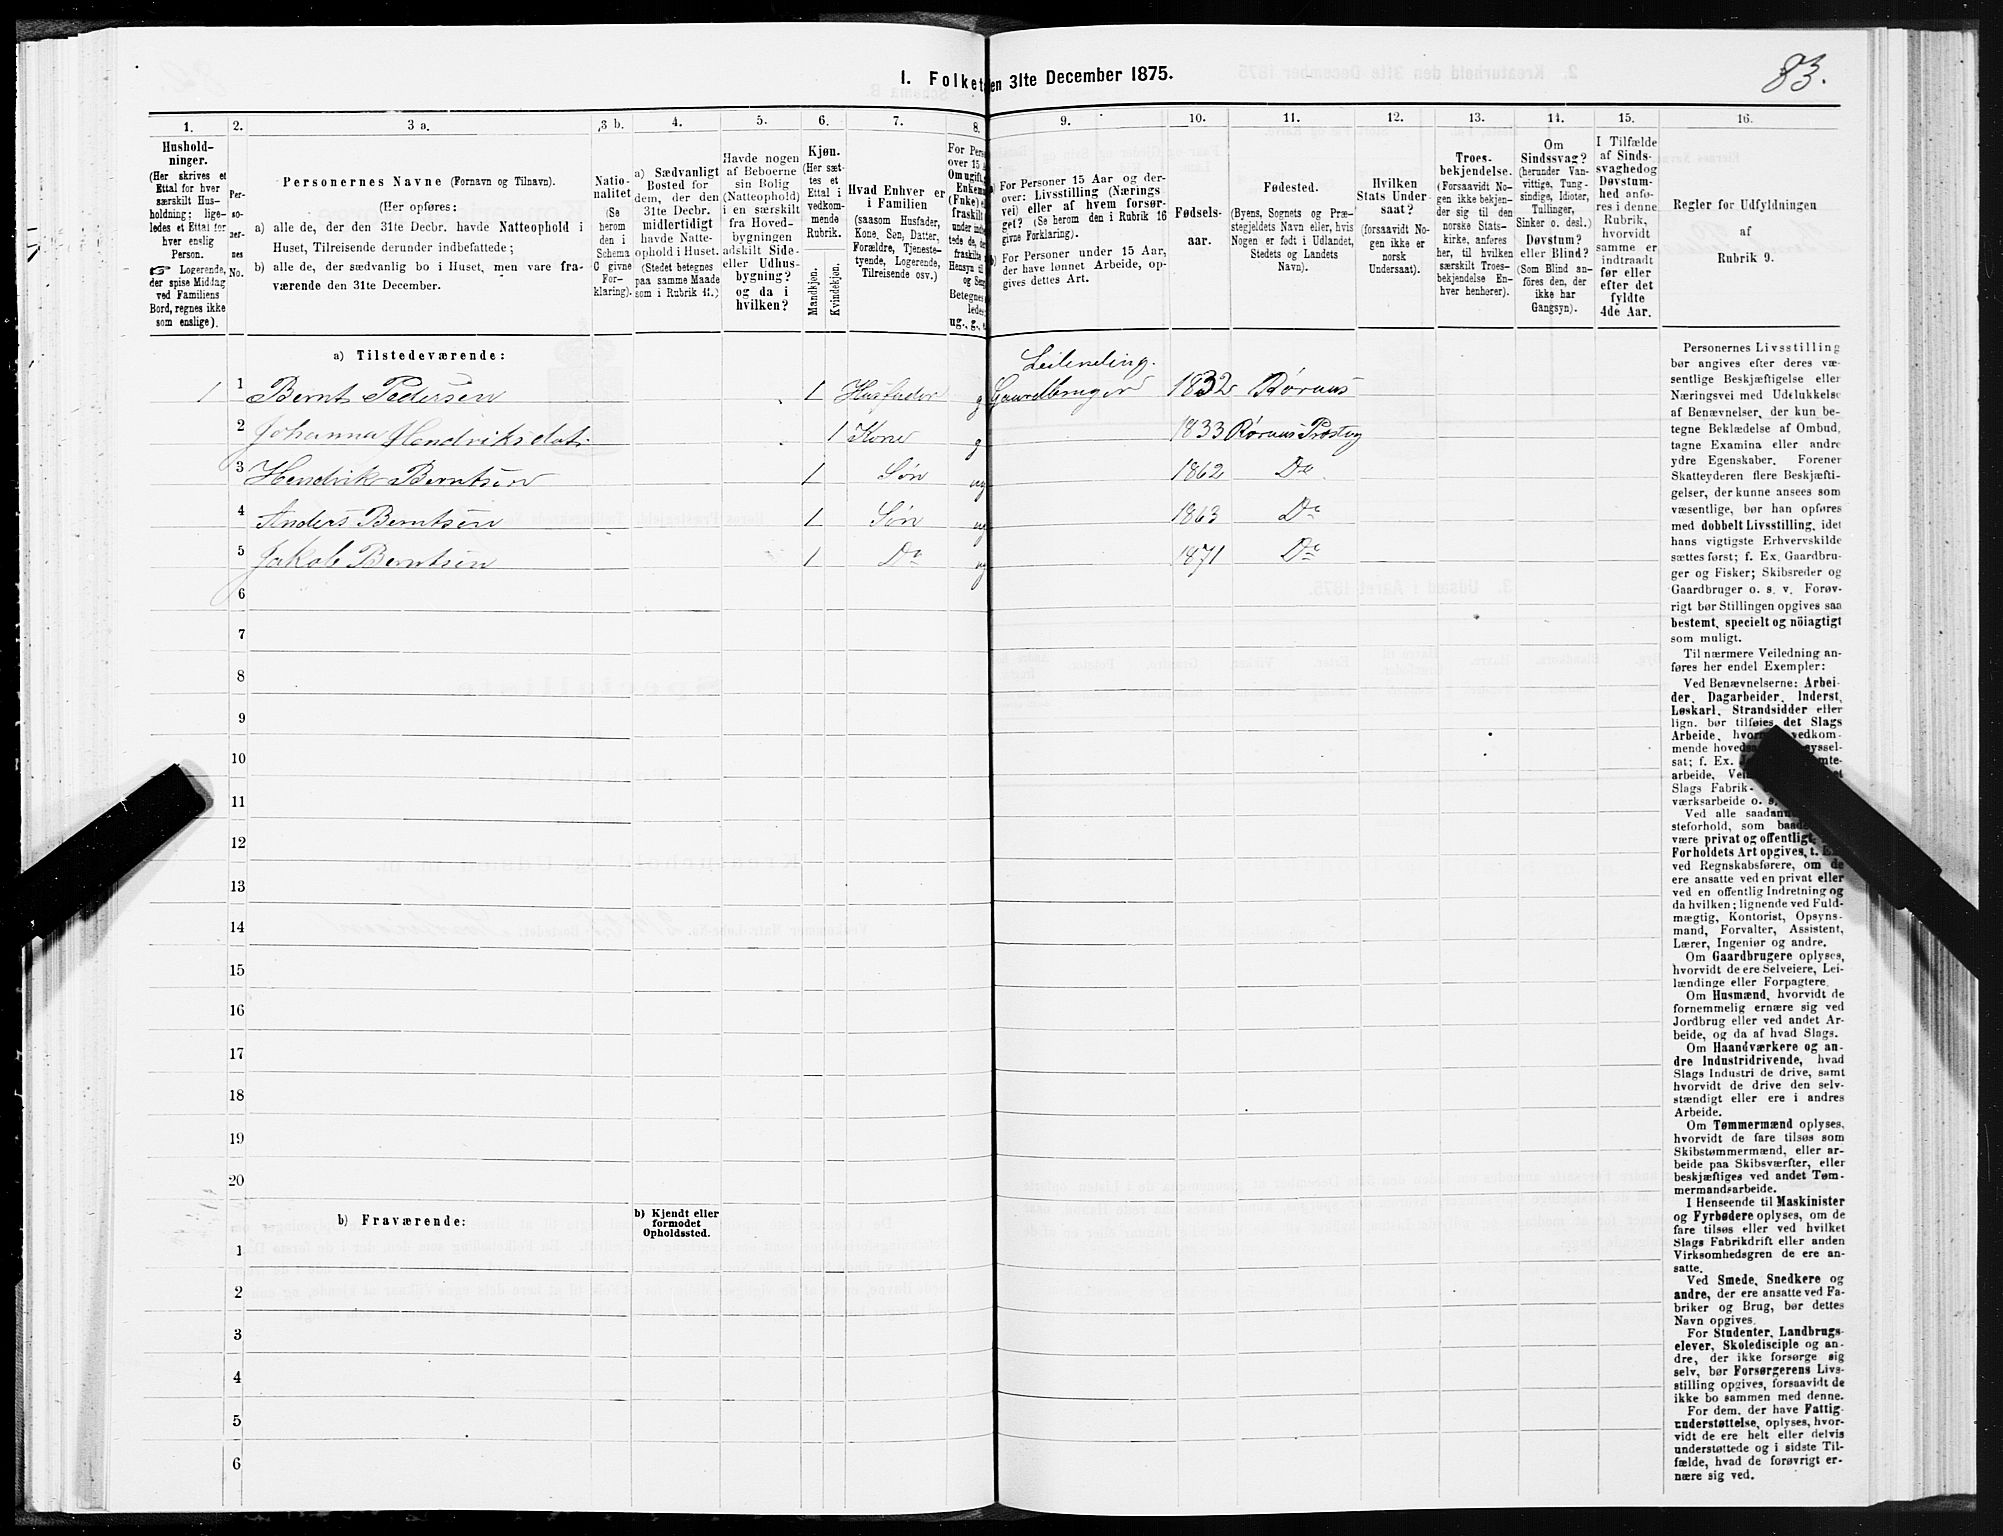 83.
I. Folket
en 31te December 1875.
1.
2.
3 a.
3 b.
4.
5.
6.
7.
8.
9.
10.
11.
12.
13.
14.
15.
16.
Hushold-
ninger.
(Her skrives et
Ettal for hver
særskilt Hus-
holdning; lige-
ledes et Ettal for
hver enslig
Person.
☞ Logerende,
der spise Middag
ved Familiens
Bord, regnes ikke
som enslige).
Per-
so-
ner-
nes
No.
Personernes Navne (Fornavn og Tilnavn).
(Her opføres:
a) alle de, der den 31te Decbr. havde Natteophold i
Huset, Tilreisende derunder indbefattede;
b) alle de, der sædvanlig bo i Huset, men vare fra-
værende den 31te December.
Natio-
nalitet
(Se
herom
den i
Schema
C givne
For-
klaring).
a) Sædvanligt
Bosted for
dem, der den
31te Decbr.
midlertidigt
havde Natte-
ophold i Huset.
(Stedet betegnes
paa samme Maade
som i Rubrik 11.)
Havde nogen
af Beboerne
sin Bolig
(Natteophold)
i en særskilt
fra Hoved-
bygningen
adskilt Side-
eller Udhus-
bygning?
og da i
hvilken?
Kjøn.
(Her sæt-
tes et
Ettal i
vedkom-
mende
Rubrik.
Mandkjøn.
Kvindekjøn.
Hvad Enhver er
i Familien
(saasom Husfader,
Kone, Søn, Datter,
Forældre, Tjeneste-
tyende, Logerende,
Tilreisende osv.)
For Pers
over 15 a
Om ugift, g
Enkem
(Enke) e
fraskilt
under indb
tede de, de
fraskilte
Hensyn til
og Seng
Betegnes
ledes:
ug., g., e
a) For Personer 15 Aar og der-
over: Livsstilling (Nærings
vei) eller af hvem forsør-
get? (Se herom den i Rubrik 16
givne Forklaring).
b) For Personer under 15 Aar,
der have lønnet Arbeide, op-
gives dettes Art.
Fødsels-
aar.
Fødested.
(Byens, Sognets og Præ-
stegjeldets Navn eller, hvis
Nogen er født i Udlandet,
Stedets og Landets
Navn).
Hvilken
Stats Under
saat?
(forsaavidt No-
gen ikke er
norsk
Undersaat).
Troes-
bekjendelse.
(Forsaavidt No-
gen ikke bekjen-
der sig til den
norske Stats-
kirke, anføres
her, til hvilken
særskilt Troes-
bekjendelse En-
hver henhører).
Om
Sindssvag?
(herunder Van-
vittige, Tung-
sindige, Idioter,
Tullinger,
Sinker o. desl.)
Døvstum?
eller Blind?
(Som Blind an-
føres den, der
ikke har
Gangsyn).
I Tilfælde
af Sinds-
svaghed og
Døvstum-
hed anfø-
res i denne
Rubrik,
hvorvidt
samme er
indtraadt
før eller
efter det
fyldte
4de Aar.
Regler for Udfyldningen
af
Rubrik 9.
a) Tilstedeværende:
Leilending.
1 1 Bernt Pedersen 1 Husfader g Gaardbruger 1832 Røraas
2 Johanna Hendriksdat. 1 Kone g 1833 Røraas Præstg
3 Hendrik Berntsen 1 Søn ug 1862 Do
4 Anders Berntsen 1 Søn ug 1863 Do
5 Jakob Berntsen 1 Do ug 1871 Do
6
7
8
9
10
11
12
13
14
15
16
17
18
19
20
b) Fraværende:
b) Kjendt eller
formodet
Opholdssted.
1
2
3
4
5
6
Personernes Livsstilling
bør angives efter deres væ-
sentlige Beskjæftigelse eller
Næringsvei med Udelukkelse
af Benævnelser, der kun be-
tegne Beklædelse af Ombud,
tagne Examina eller andre
ydre Egenskaber. Forener
Skatteyderen flere Beskjæfti-
gelser, der kunne ansees som
væsentlige, bør han opføres
med dobbelt Livsstilling, idet
hans vigtigste Erhvervskilde
sættes først; f. Ex. Gaardbru-
ger og Fisker; Skibsreder og
Gaardbruger o. s. v. Forøv-
rigt bør Stillingen opgives saa
bestemt, specielt og nöiagtigt
som muligt.
Til nærmere Veiledning an-
føres her endel Exempler:
Ved Benævnelserne: Arbei-
der, Dagarbeider, Inderst,
Løskarl, Strandsidder eller
lign. bør tilføies det Slags
Arbeide, hvor vedkom-
mende hoveds ysssel-
sat; f. Ex. mte-
arbeide, Ve et
Slags Fabrik-
værksarbeide o. s.
Ved alle saadann
steforhold, som baade
være privat og offentligt,
Forholdets Art opgives, t. E
ved Regnskabsførere, om de
ere ansatte ved en privat eller
ved en offentlig Indretning og
da hvilken; lignende ved Fuld-
mægtig, Kontorist, Opsyns-
mand, Forvalter, Assistent,
Lærer, Ingeniør og andre.
Om Gaardbrugere oplyses,
hvorvidt de ere Selveiere, Lei-
lændinge eller Forpagtere.
Om Husmænd, hvorvidt de
fornemmelig ernære sig ved
Jordbrug eller ved andet Ar-
beide, og da af hvad Slags.
Om Haandværkere og an-
dre Industridrivende, hvad
Slags Industri de drive, samt
hvorvidt de drive den selv-
stændigt eller ere i andres
Arbeide.
Om Tømmermænd oplyses,
hvorvidt de fare tilsøs som
Skibstømmermænd, eller ar-
beide paa Skibsværfter, eller
beskjæftiges ved andet Tøm-
mermandsarbeide.
I Henseende til Maskinister
og Fyrbødere oplyses, om de
fare tilsøs eller ved hvilket
Slags Fabrikdrift eller anden
Virksomhedsgren de ere an-
satte.
Ved Smede, Snedkere og
andre, der ere ansatte ved Fa-
briker og Brug, bør dettes
Navn opgives.
For Studenter, Landbrugs-
elever, Skoledisciple og an-
dre, der ikke forsørge sig
selv, bør Forsørgerens Livs-
stilling opgives, forsaavidt de
ikke bo sammen med denne.
For dem, der have Fattig-
understøttelse, oplyses, hvor-
vidt de ere helt eller delvis
understøttede og i sidste Til-
fælde, hvad de forøvrigt er-
nære sig ved.